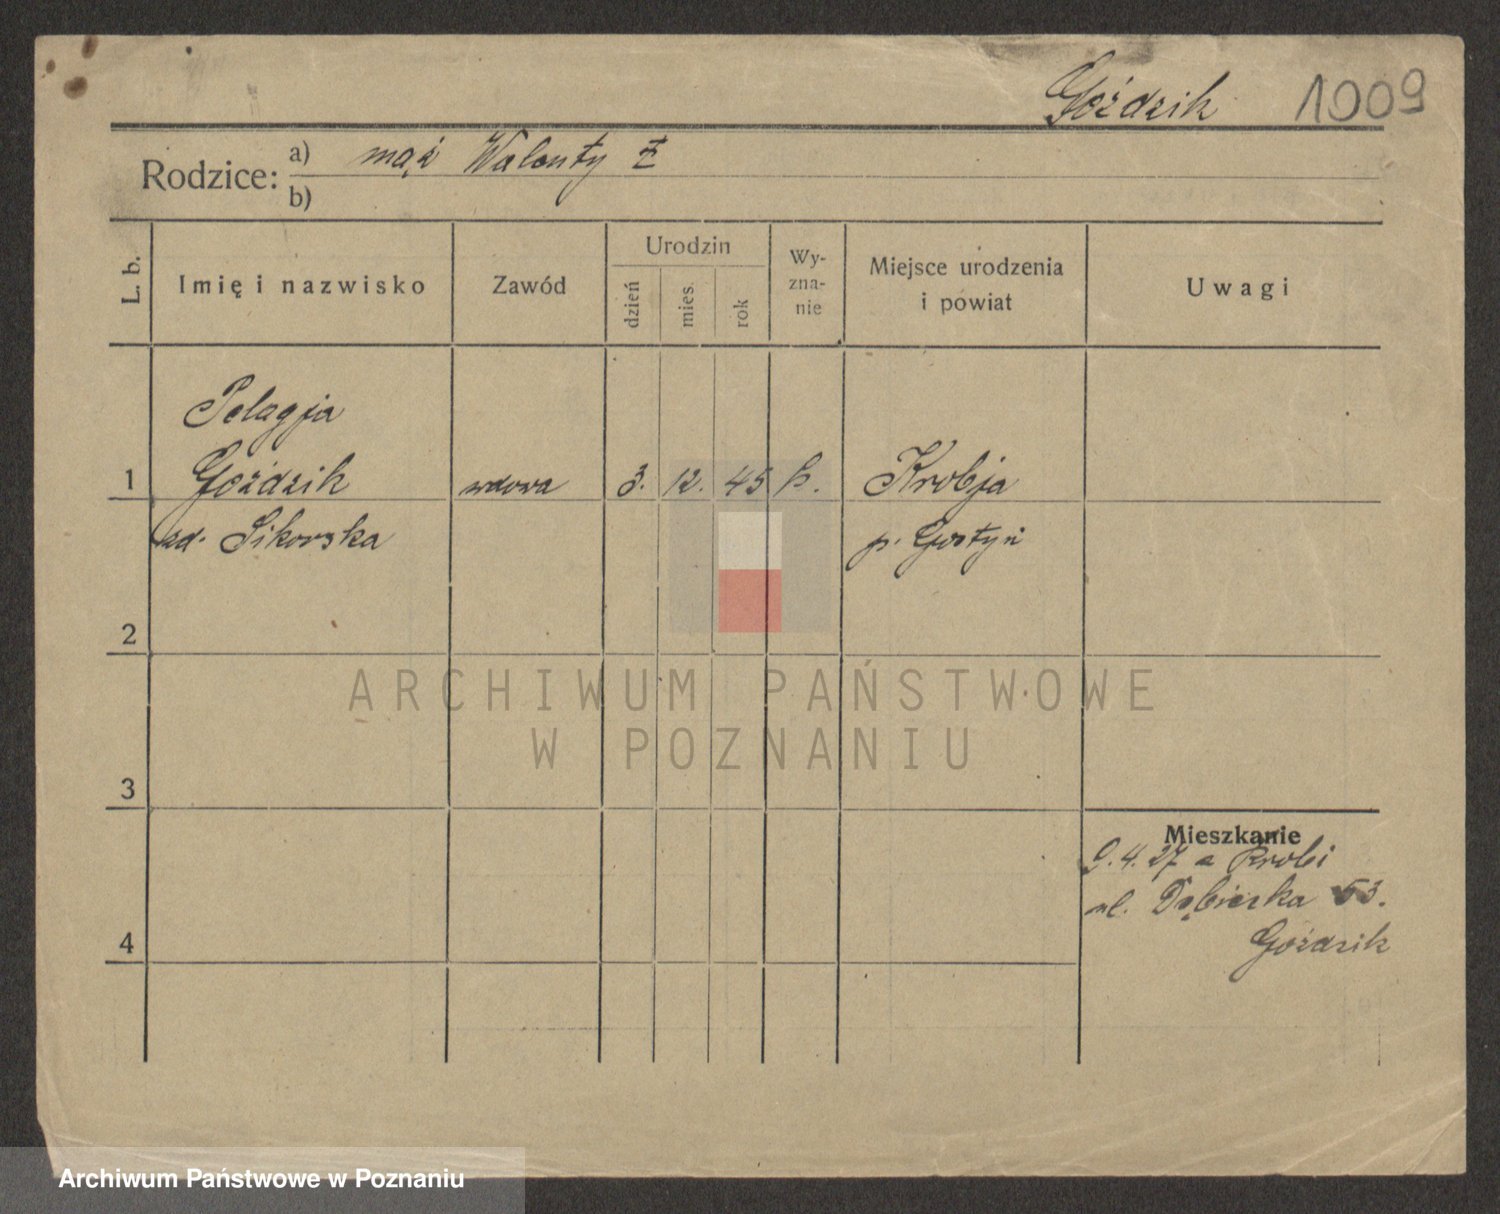 Goździk 1009
Rodzice: a) mąż Walenty
b)
L. b.
Imię i nazwisko
Zawód
Urodzin
dzień
mies.
rok
Wy-
zna-
nie
Miejsce urodzenia
i powiat
Uwagi
Pelagja
1 Goździk wdowa 3. 12. 45 k. Krobja
zd. Sikorska p. Gostyń
2
ARCHIWUM PAŃSTWOWE
W POZNANIU
3
Mieszkanie
9.4.27 z Krobi
ul. 53.
Goździk
4
Archiwum Państwowe w Poznaniu